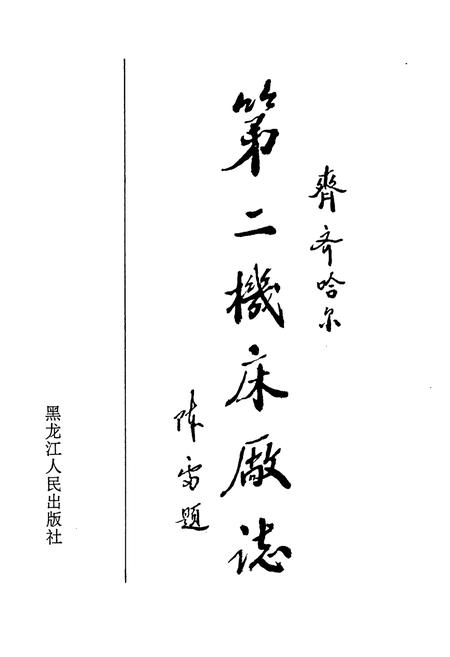 齊齐哈尔
第二機床廠誌
陈雷題
黑龙江人民出版社